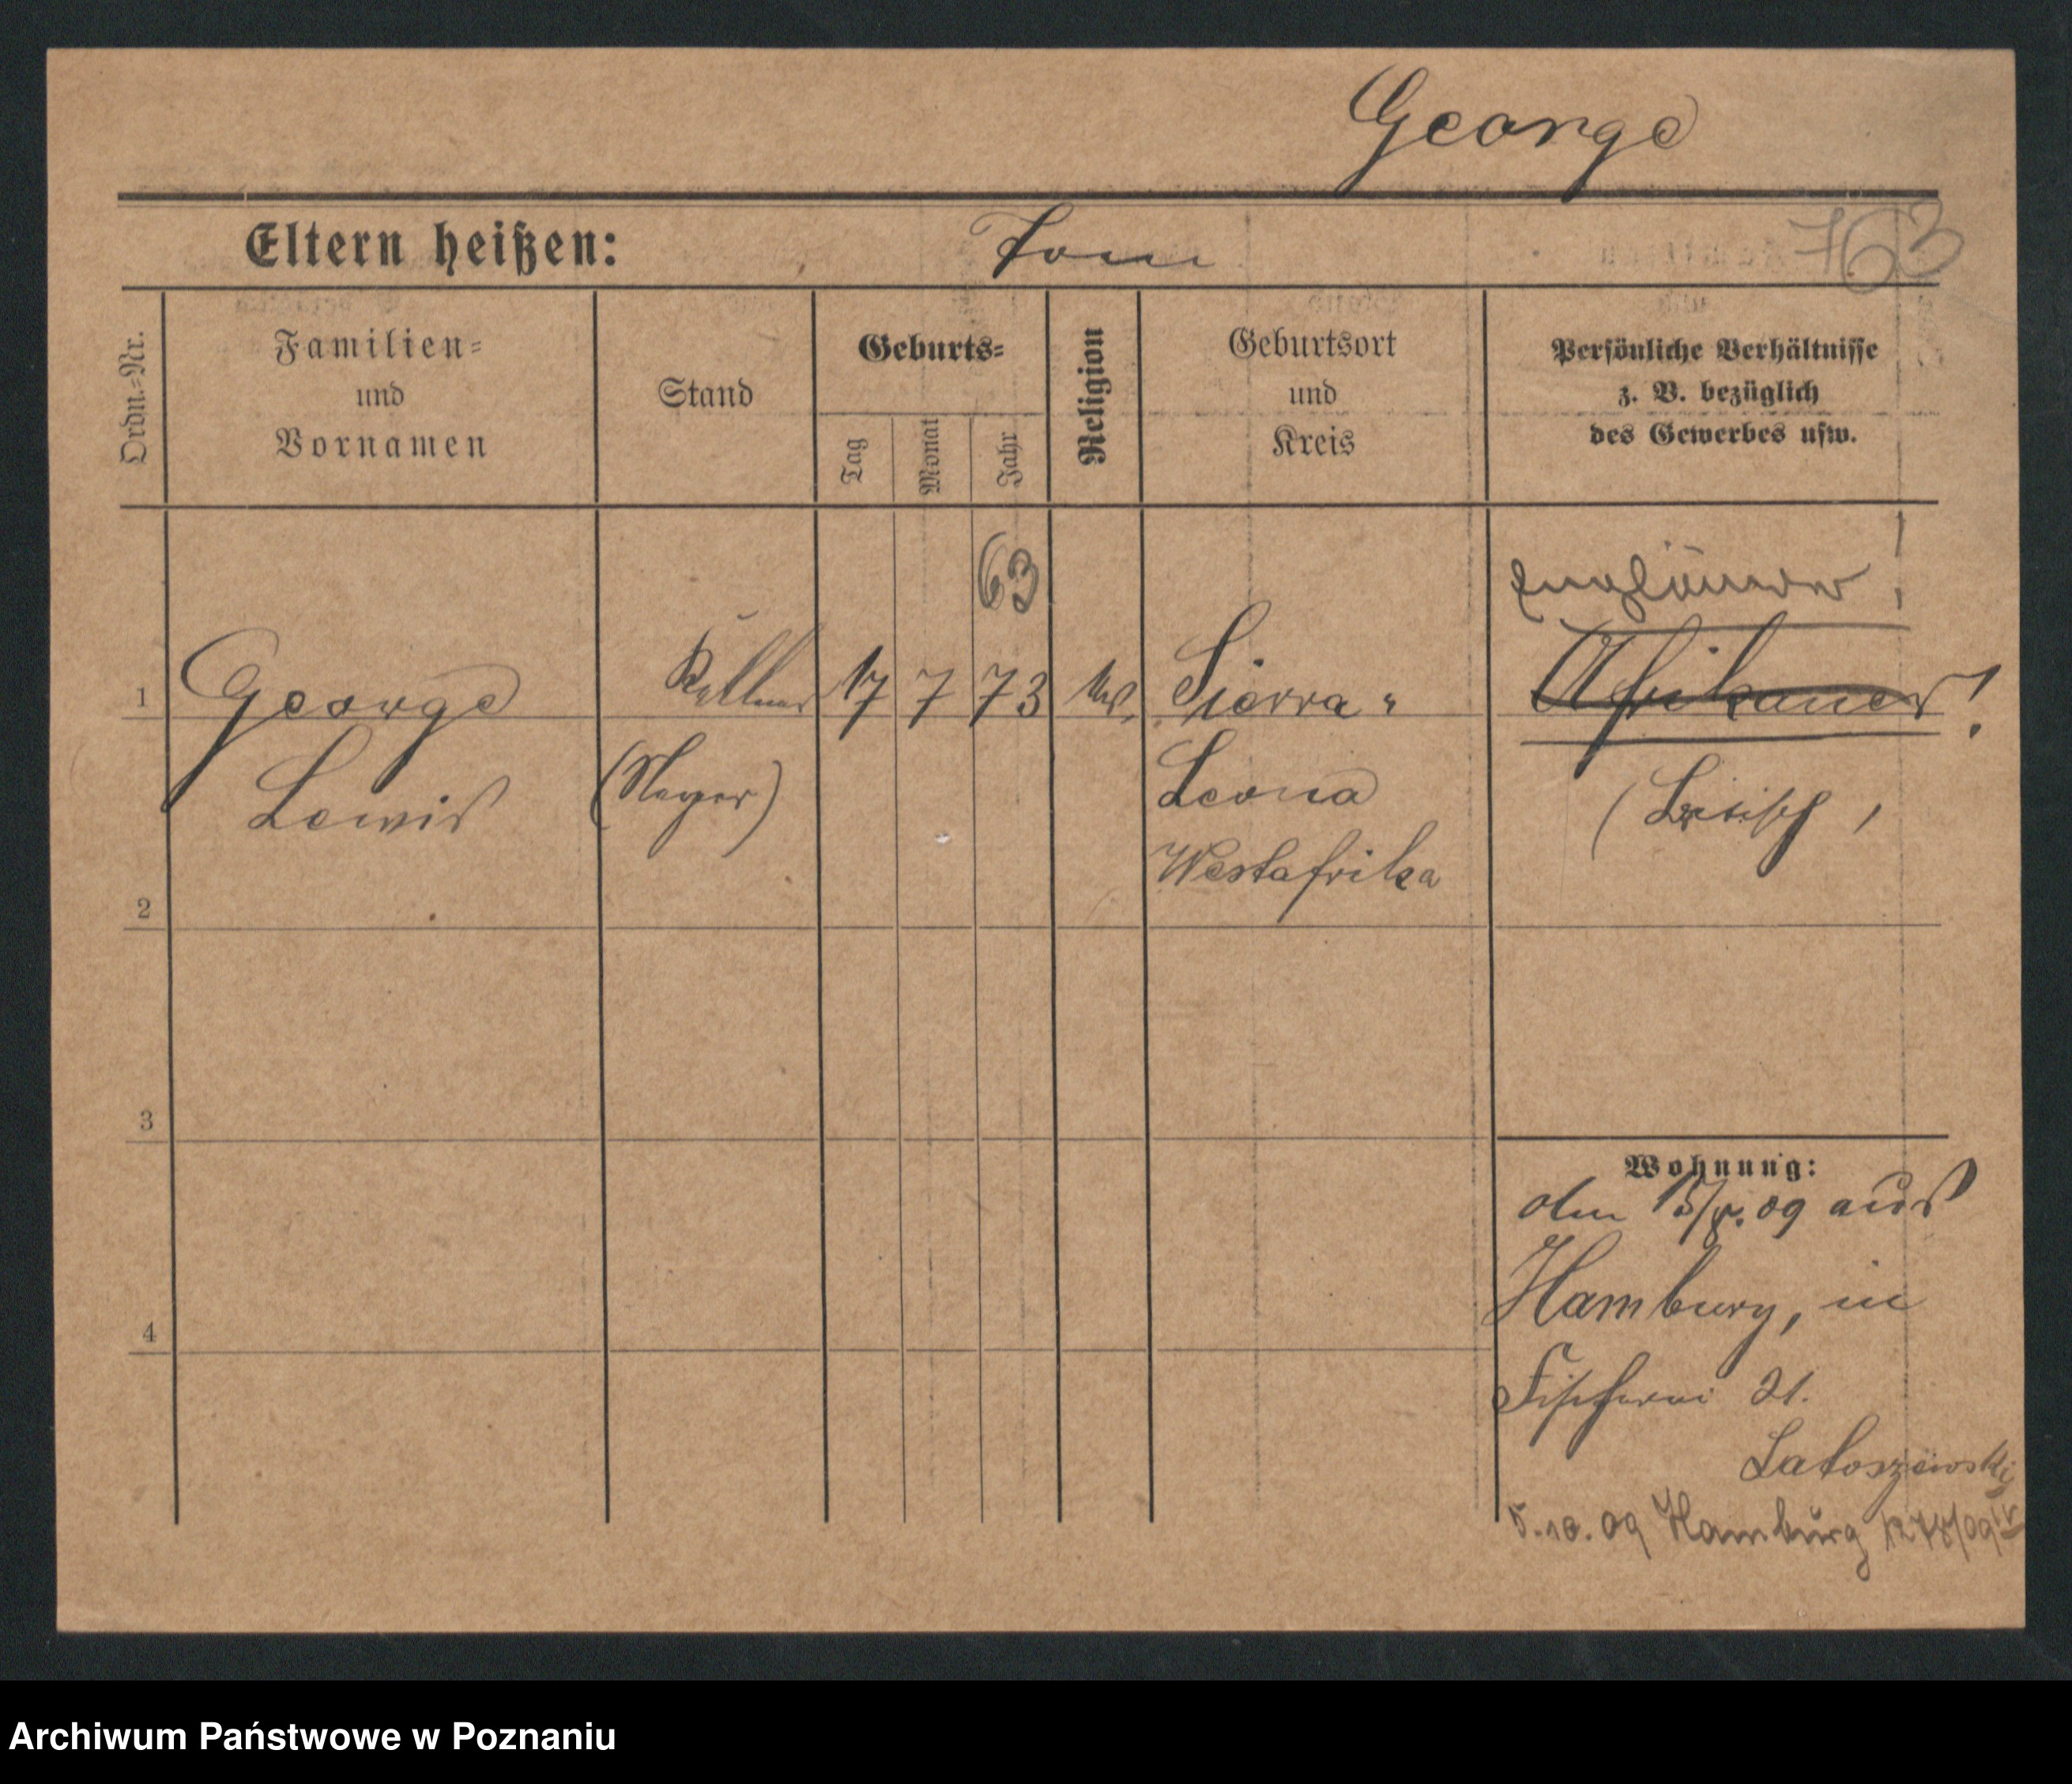 George
Eltern heißen: Tom
763
Ordn.=Nr.
Familien=
und
Vornamen
Stand
Geburts=
Tag
Monat
Jahr
Religion
Geburtsort
und
Kreis
Persönliche Verhältnisse
z. B. bezüglich
des Gewerbes usw.
63
Engländer!
1 George Kellner 17 7 73 Sierra- Afrikaner!
Lewis (Neger) Leona
Westafrika
2
3
4
Wohnung:
09 aus
Hamburg, in
Fischerei 21.
Latoszewski
5.10.09 Hamburg
Archiwum Państwowe w Poznaniu